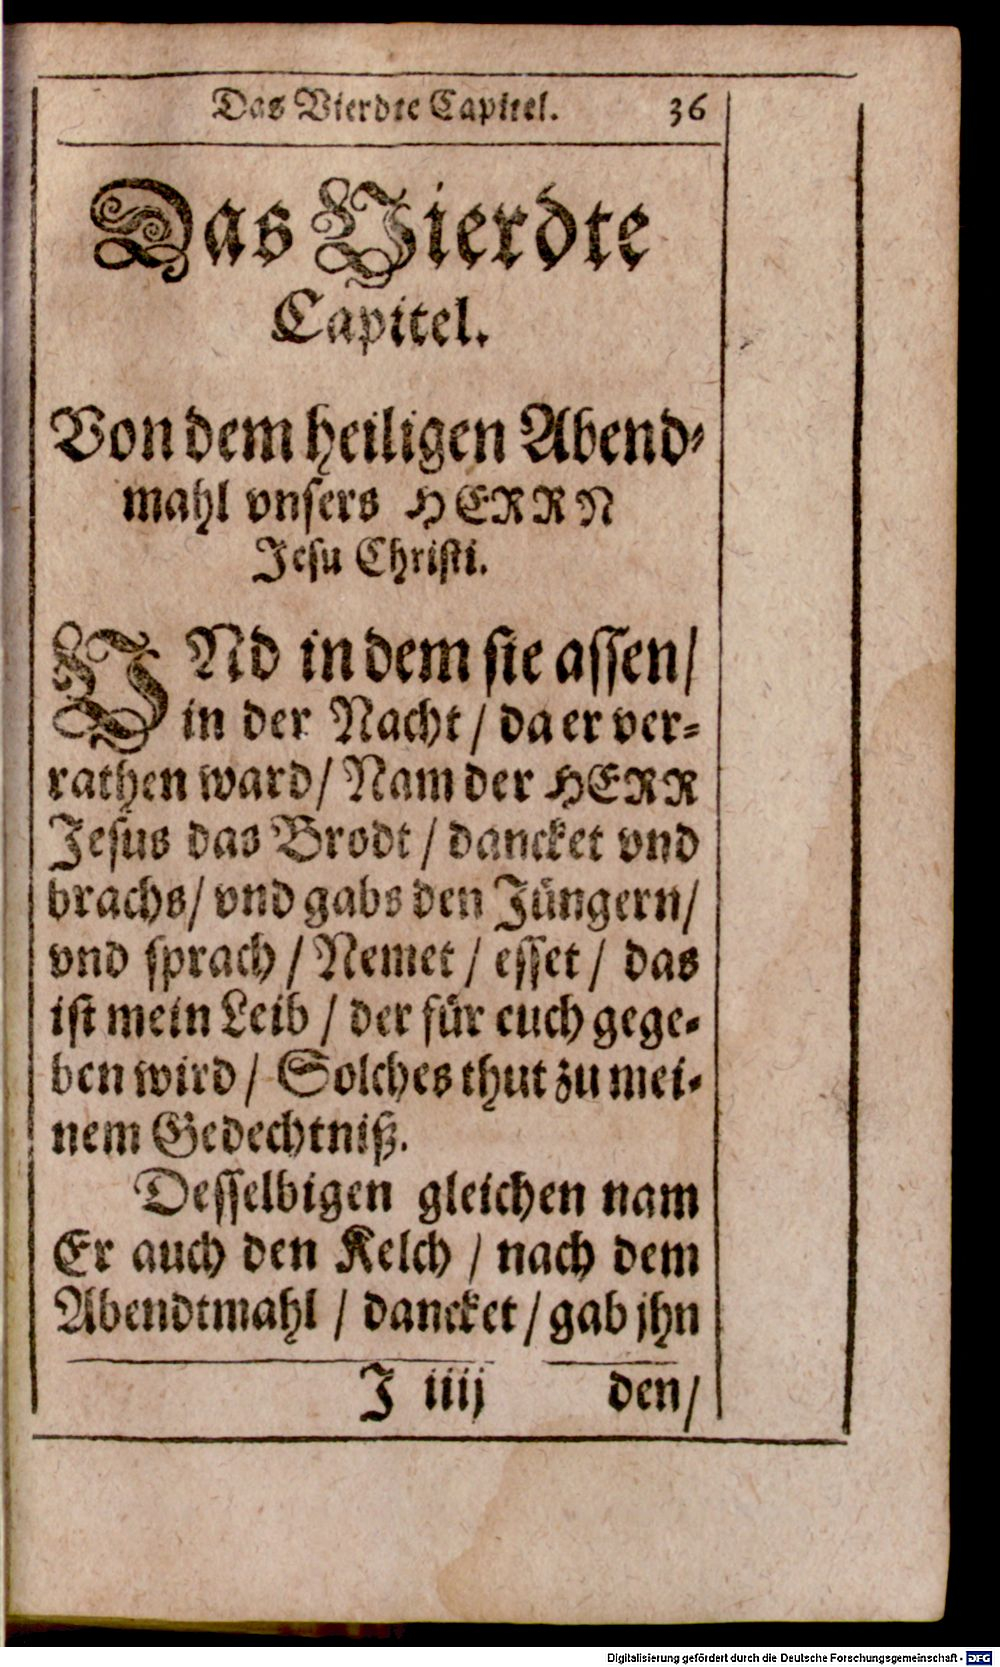 Das Vierdte Capitel. 36
Das Vierdte
Capitel.
Von dem heiligen Abend-
mahl vnsers HERRN
Jesu Christi.
VNd in dem sie assen/
in der Nacht / da er ver-
rathen ward/ Nam der HERR
Jesus das Brodt / dancket vnd
brachs/ vnd gabs den Jüngern/
vnd sprach / Nemet / esset / das
ist mein Leib / der für euch gege-
ben wird / Solches thut zu mei-
nem Gedechtniß.
Desselbigen gleichen nam
Er auch den Kelch / nach dem
Abendtmahl / dancket / gab jhn
J iiij den/
Digitalisierung gefördert durch die Deutsche Forschungsgemeinschaft - DFG